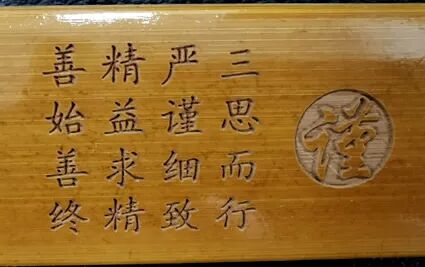 谨
三思而行
严谨细致
精益求精
善始善终